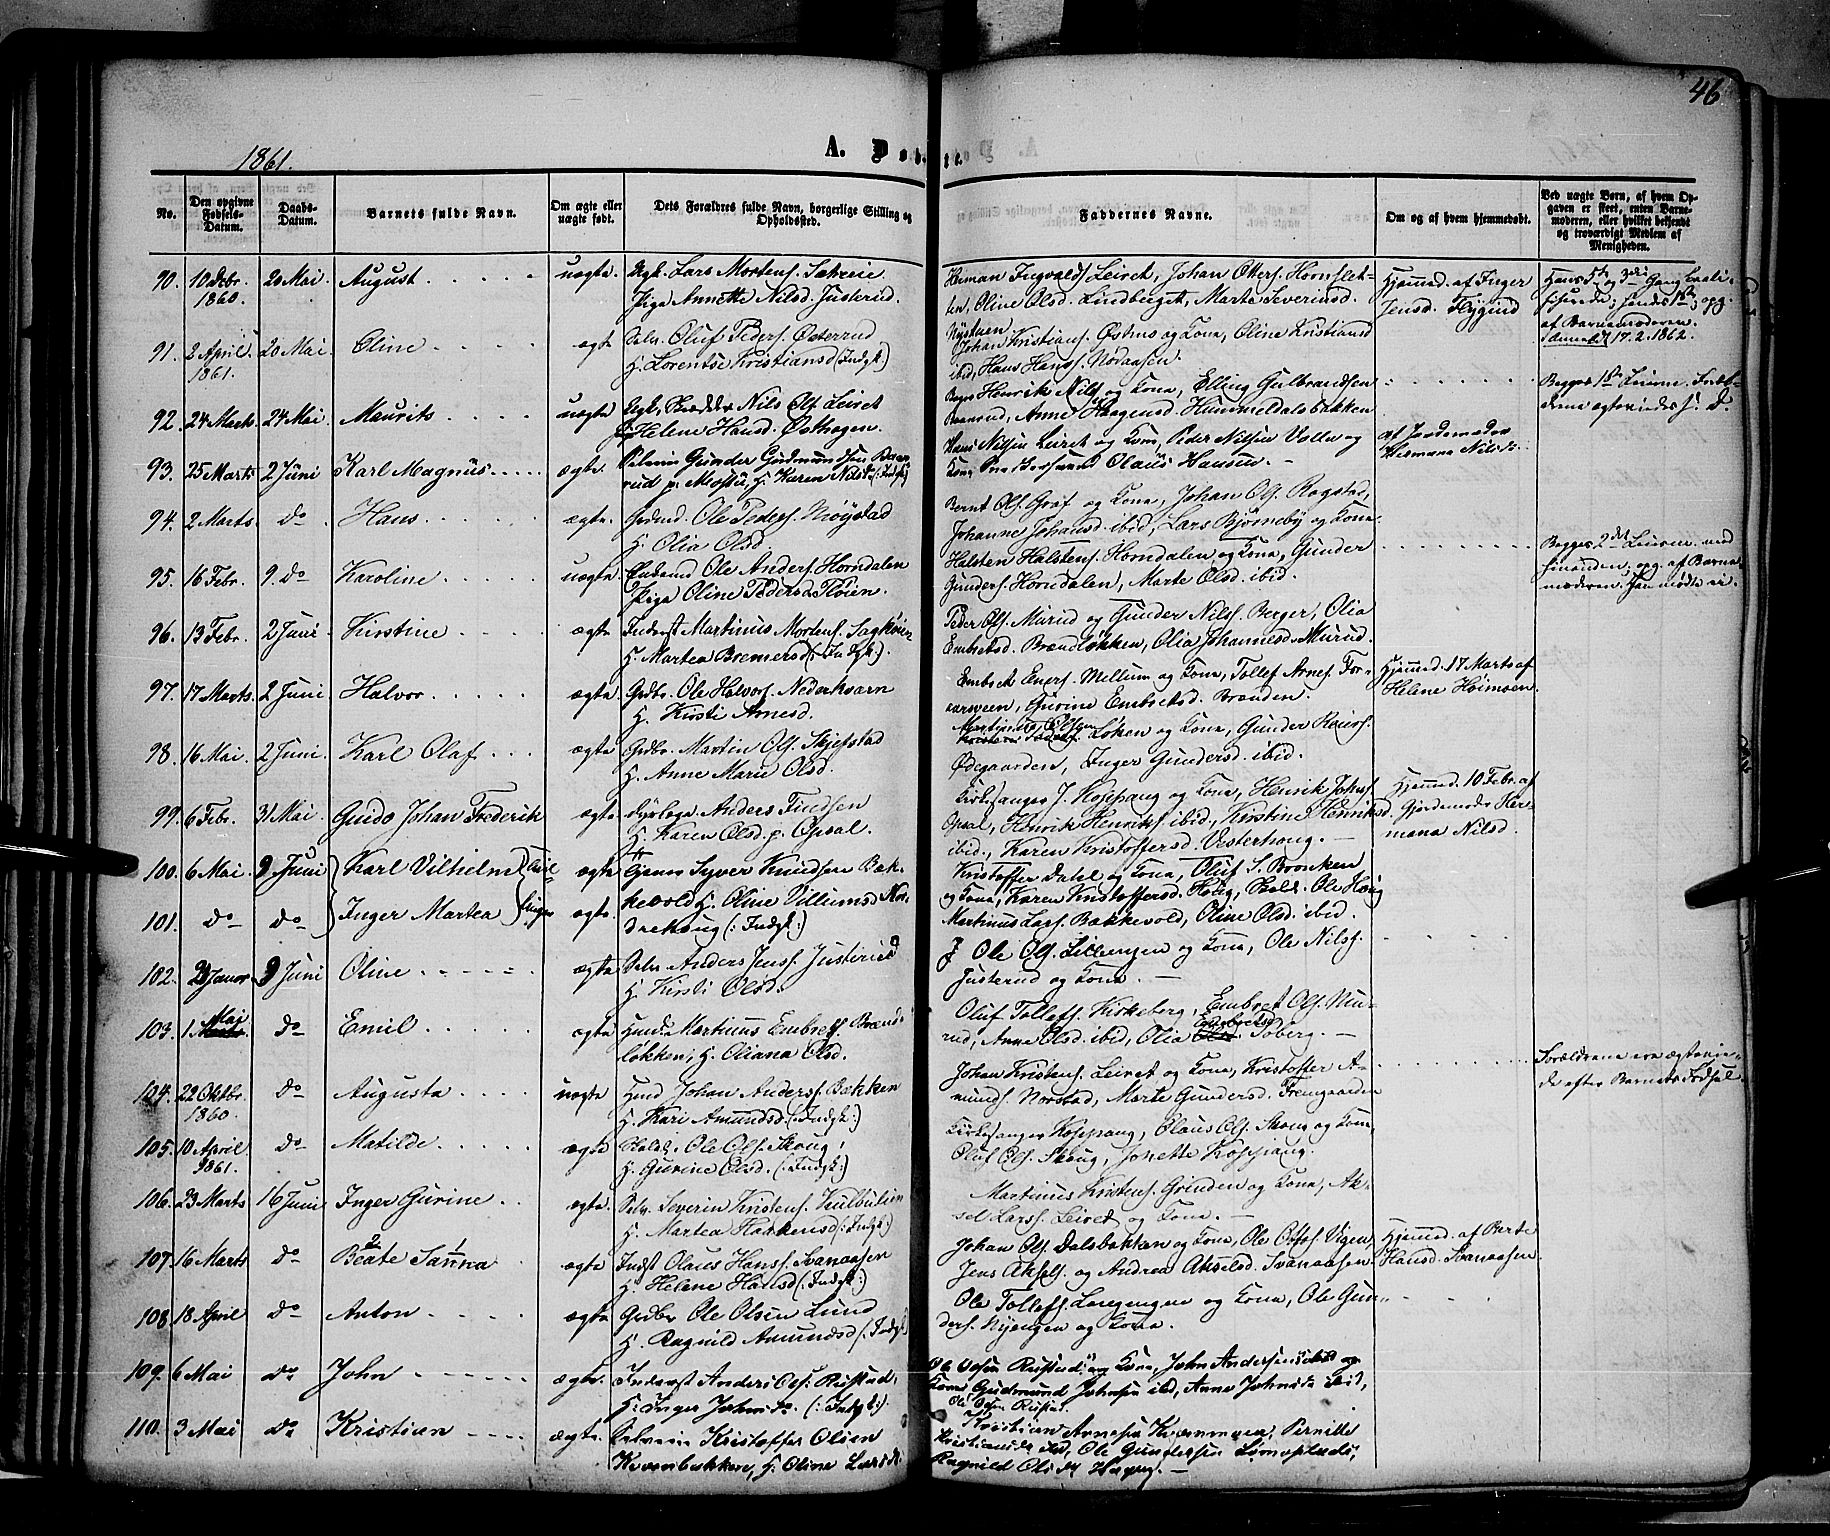 46
1861.
A. Døbte.
No.
Den opgivne Fødsels-Datum.
Daabs-Datum.
Barnets fulde Navn.
Om ægte eller uægte født.
Dets Forældres fulde Navn, borgerlige Stilling og Opholdssted.
Faddernes Navne.
Om og af hvem hjemmedøbt.
Ved uægte Børn, af hvem Opgaven er skeet, enten Barnemoderen, eller hvilket bekjendt og troværdigt Medlem af Menigheden.
90. 10 Debr. 1860. 20 Mai August uægte
Ugk. Lars Mortens. Sætreie
Pige Annette Nilsd. Justerud
Herman Ingvalds. Leiret, Johan Otters. Hornslet-
ten, Oline Olsd. Lindberget, Marte Severinsd.
Nystuen
Hjemmd. af Inger
Jensd. Flygind
af Barnemoderen.
17.2.1862.
91. 2 April 1861. 20 Mai Oline ægte
Selv. Oluf Peders. Østerud
H. Lorentse Kristiansd (: Indgk:)
Johan Kristians. Østmo og Kona, Oline Kristiansd
ibid, Hans Hans. Nordaasen.
92. 24 Marts 24 Mai Maurits uægte
Ugk. Nils Ols. Leiret
Helene Hansd. Østhagen.
Henrik Nils. og Kona, Elling Gulbrandsen
Anne Haagensd. Hummeldalsbakken
Begges 1ste Leierm.
93. 25 Marts 2 Juni Karl Magnus ægte
Gunder Gudmundsen
H. Karen Nilsd. (: Indgk:)
Hans Nilsen Leiret og Kone, Peder Nilsen Volle og
Kone Olaus Hansen.
af Jordemoder
Hermana Nilsd.
94. 2 Marts do Hans ægte
Grdmd. Ole Peders. Nøystad
H. Olia Olsd
Bernt Ols. Graf og Kona, Johan Ols. Rogstad,
Johanne Johansd. ibid, Lars Bjørneby og Kona
95. 16 Febr. 9 do Karoline uægte
Ole Anders. Horndalen
Pige Oline Pedersd. Fløien.
Halsten Halstens. Horndalen og Kona, Gunder
Gunders. Horndalen, Marte Olsd. ibid.
Begges 2det Leierm.
96. 13 Febr. 2 Juni Kirstine ægte
Inderst Martinus Mortens. Sagkoien
H. Martea Bremersd (: Indgk:)
Peder Ols. Murud og Gunder Nils. Berger, Olia
Embretsd. Brændløkken, Olia Johannesd. Murud.
97. 17 Marts 2 Juni Halvor ægte
Grdbr. Ole Halvors. Nederkværn
H. Kirsti Arnesd.
Embret Eners. Mellum og Kona, Tollef Arnes. For-
arsveen, Gurine Embretsd. Brænden.
Hjemmd. 17 Marts af
Helene Hoimoen
98. 16 Mai 2 Juni Karl Olaf ægte
Grdbr. Martin Ols. Skjefstad
H. Anne Marie Olsd.
Løken og Kona, Gunder Reiers.
Ødegaarden, Inger Gundersd. ibid.
99. 6 Febr. 31 Mai Guido Johan Frederik ægte
Dyrlæge Anders Findsen
H. Karen Olsd. p. Opsal.
Kirkesanger J. Koppang og Kona, Henrik Johs.
Opsal, Henrik Henriks. ibid, Kirstine Henriksd.
ibid., Karen Kristoffersd. Vesterhaug.
Hjemmd. 10 Febr. af
Gjordemoder Her-
mana Nilsd.
100. 6 Mai 9 Juni Karl Vilhelm ægte
101. do do Inger Martea ægte
Tvil-
linger
Syver Knudsen Bæk-
kevold H. Oline Villumsd No-
drehaug (: Indgk:)
Kristoffer Dahl og Kona, Oluf S. Bronken
og Kona, Karen Kristoffersd. Haug, Ole Haug
Martinus Lars. Bækkevold, Oline Olsd. ibid.
102. 28 Januar 9 Juni Oline ægte
Selv. Anders Jens. Justerud
H. Kirsti Olsd.
Ole Ols. Lillengen og Kona, Ole Nils.
Justerud og Kona.
103. 1 Mai do Emil ægte
Husmd. Martinus Embrets. Brænd-
løkken, H. Oliana Olsd.
Oluf Tollefs. Kirkeberg, Embret Ols. Mu-
rud, Anne Olsd. ibid, Olia Embretsd Søberg.
104. 22 Oktbr. 1860 do Augusta uægte
Husmd Johan Anders. Bækken
H. Kari Amundsd. (: Indgk:)
Johan Kristens. Leiret og Kona, Kristoffer A-
munds. Norstad, Marte Gundersd. Fremgaarden
Forældrene ere ægtevie-
de efter Barnets Fødsel.
105. 10 April 1861. do Matilde ægte
Ole Ols. Skoug,
H. Gurine Olsd. (: Indgk:)
Kirkesanger Koppang, Olaus Ols. Skoug og Kona
Oluf Ols. Skoug, Jonette Koppang.
106. 23 Marts 16 Juni Inger Gurine ægte
Selv. Severin Kristens. Kulbulien
H. Martea Haakensd (: Indgk:)
Martinus Kristens. Grinden og Kona, Ak-
sel Larss. Leiret og Kona.
107. 16 Marts do Beate Sanna ægte
2 1
Indst Olaus Hans. Svenaasen
H. Helene Hansd (: Indgk:)
Johan Ols. Dalsbakken og Kona, Ole Ottos. Vigen,
Jens Aksels. og Andrea Akselsd. Svenaasen
Hjemmd. af Berte
Hansd. Svenaasen
108. 18 April do Anton ægte
Grdbr Ole Olsen Lund
H. Ragnild Amundsd (: Indgk:)
Ole Tollefs. Lorengengen og Kona, Ole Gun-
ders. Nyengen og Kona.
109. 6 Mai do John ægte
Inderst Anders Ols. Rustad,
H. Inger Johnsd. (: Indgk:).
Ole Olsen Rustad og Kone, John Andersen ibid og
Kone Gudmund Johnsen ibid, Anne Johnsd. ibid,
Ole Olsen Rustad.
110. 3 Mai do Kristian ægte
Selveier Kristoffer Olsen
Kvernbakken, H. Oline Larsd.
Kristian Arnesen Kvernmoen, Pernille
Kristiansd. ibid, Ole Gundersen Lømoplads,
Ragnild Olsd. Haug.